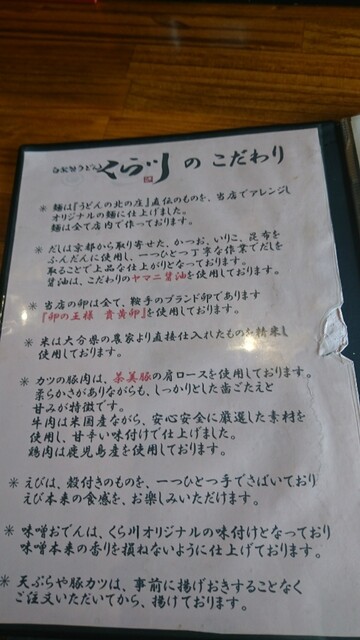 自家製うどん くら川 のこだわり
＊ 麺は『うどんの北の庄』直伝のものを、当店でアレンジし
オリジナルの麺に仕上げました。
麺は全て店内で作っております。
＊ だしは京都から取り寄せた、かつお、いりこ、昆布を
ふんだんに使用し、一つひとつ丁寧な作業でだしを
取ることで上品な仕上がりとなっております。
醤油は、こだわりのヤマニ醤油を使用しております。
＊ 当店の卵は全て、鞍手のブランド卵であります
『卵の王様 貴黄卵』を使用しております。
＊ 米は大分県の農家より直接仕入れたものを精米し
使用しております。
＊ カツの豚肉は、茶美豚の肩ロースを使用しております。
柔らかさがありながらも、しっかりとした歯ごたえと
甘みが特徴です。
牛肉は米国産ながら、安心安全に厳選した素材を
使用し、甘辛い味付けで仕上げました。
鶏肉は鹿児島産を使用しております。
＊ えびは、殻付きのものを、一つひとつ手でさばいており
えび本来の食感を、お楽しみいただけます。
＊ 味噌おでんは、くら川オリジナルの味付けとなっており
味噌本来の香りを損ねないように仕上げております。
＊ 天ぷらや豚カツは、事前に揚げおきすることなく
ご注文いただいてから、揚げております。